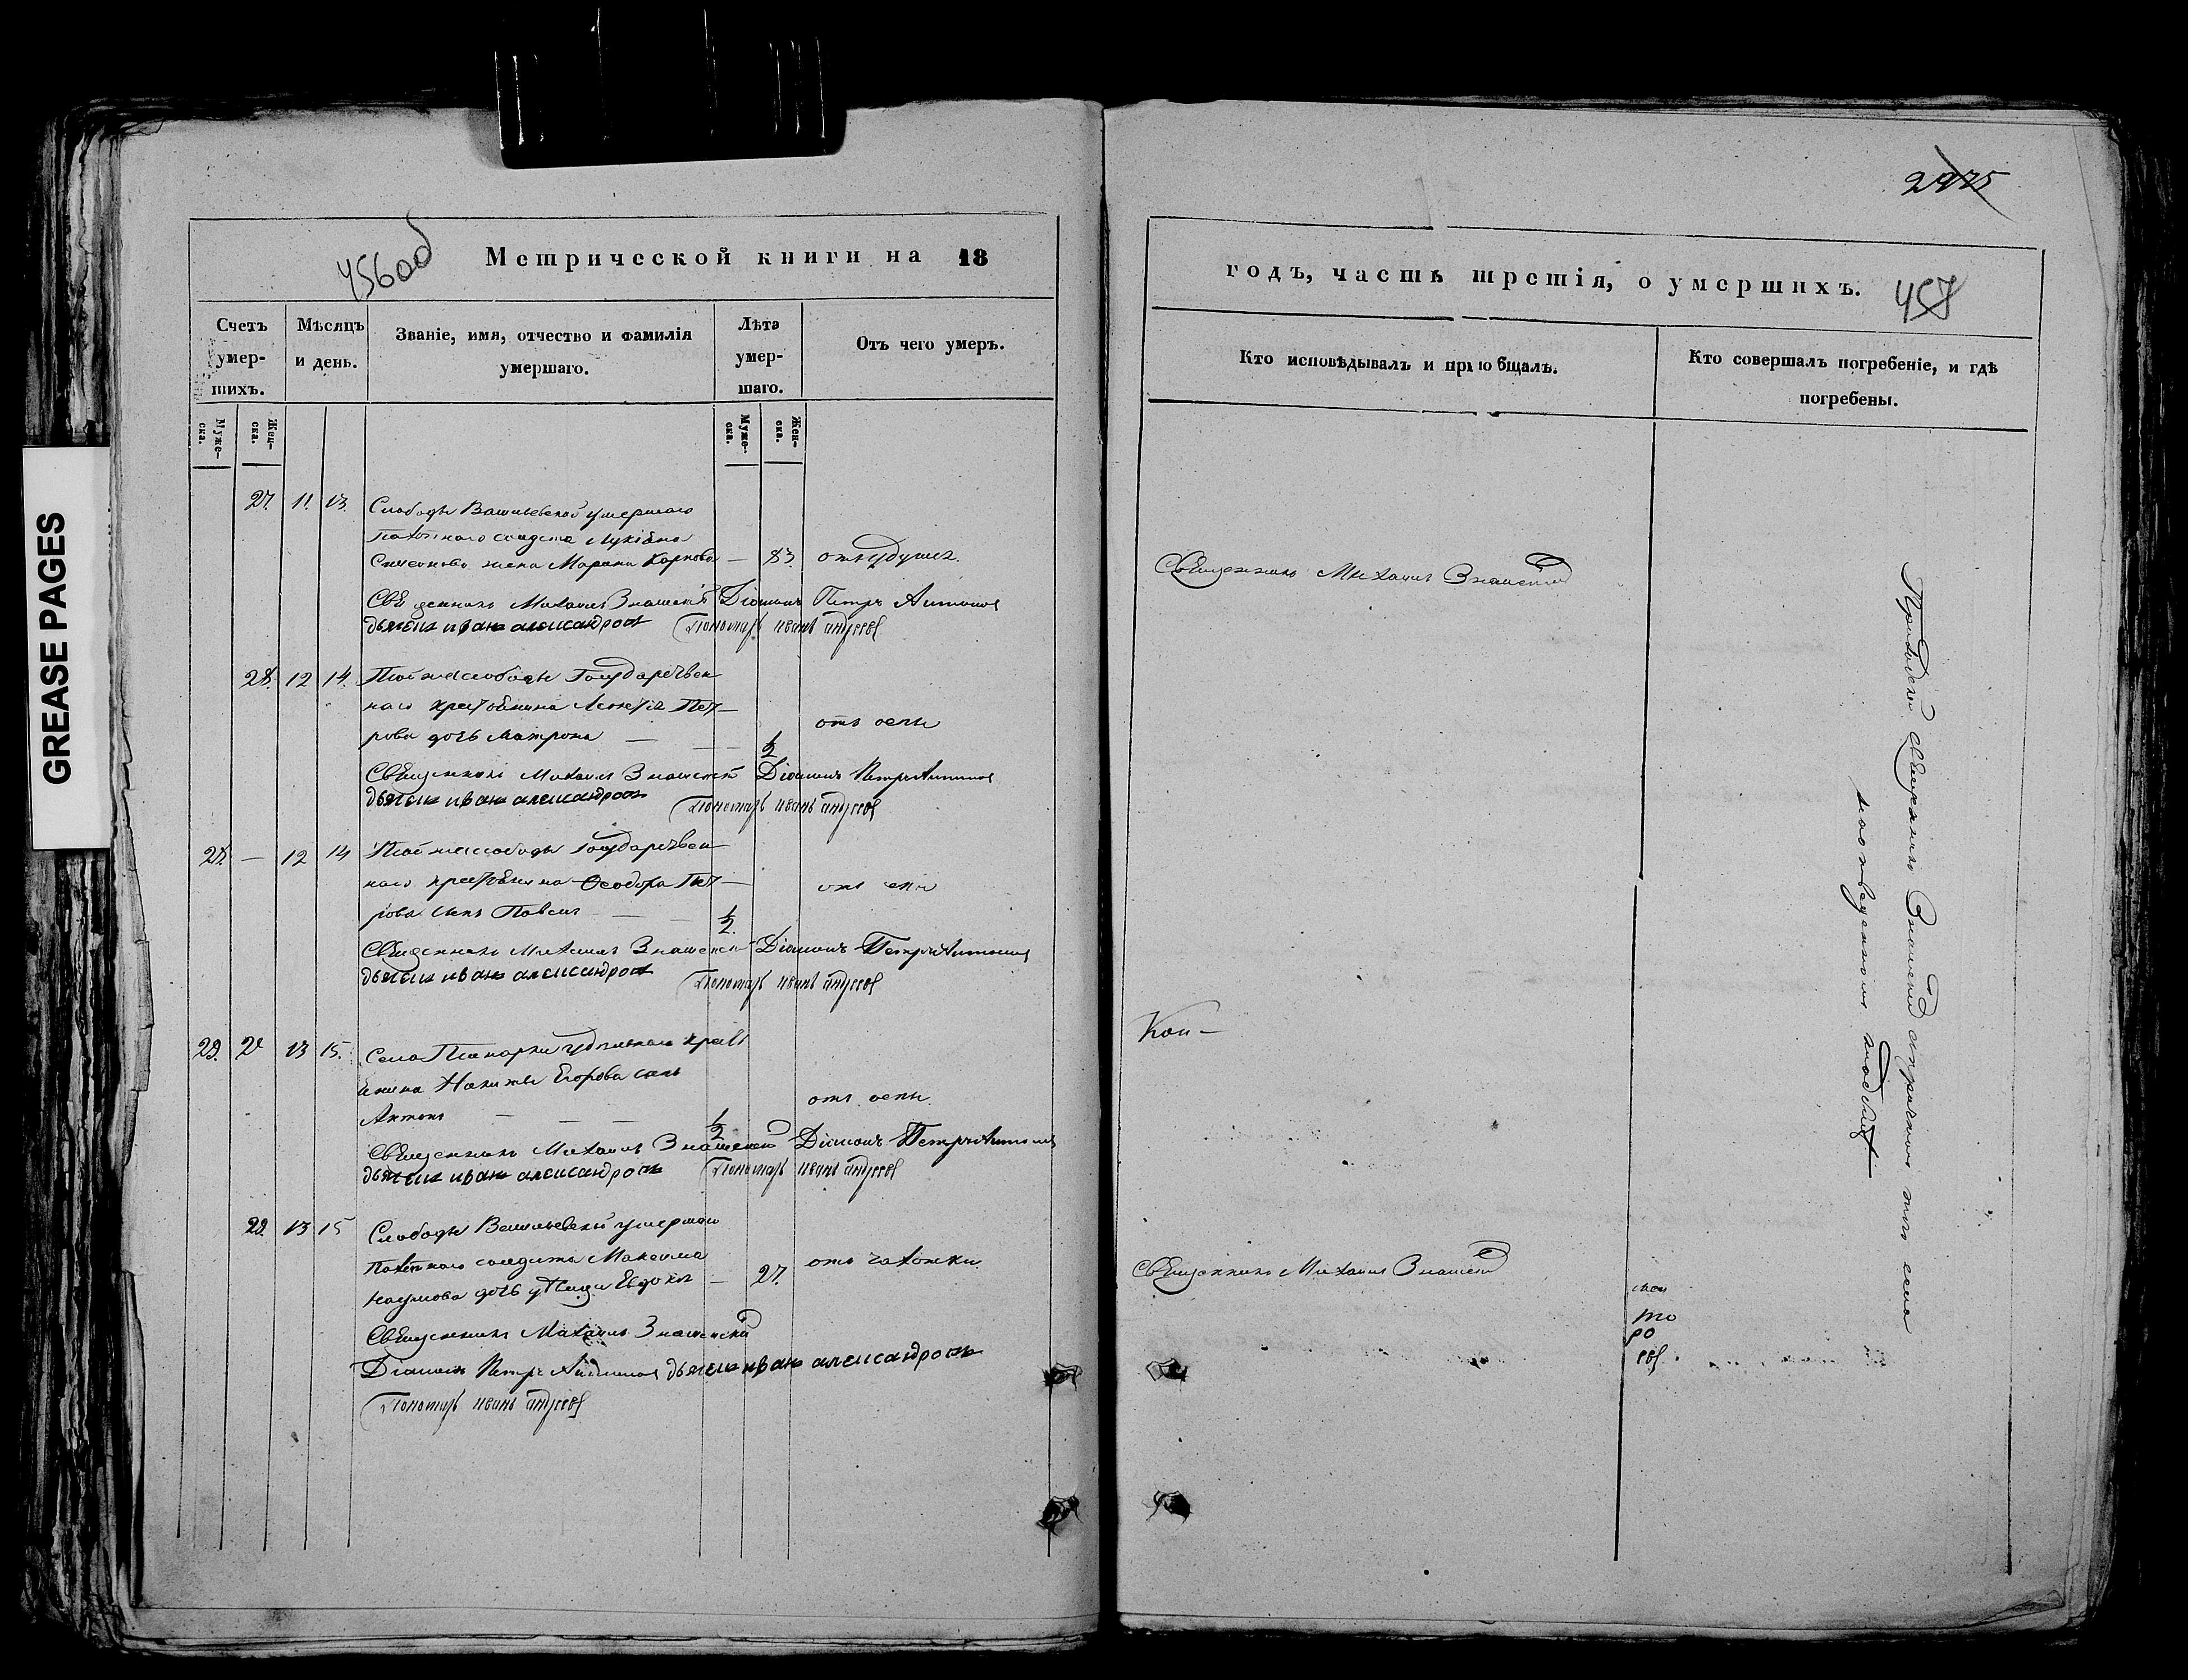 GREASE PAGES
456об
Метрической книги на 18
Счетъ умершихъ.
Мѣсяцъ и день.
Званіе, имя, отчество и фамилія умершаго.
Лѣта умершаго.
Отъ чего умеръ.
Муже-ска.
Жен-ска.
Муже-ска.
Жен-ска.
27. 11. 13. Слободы Васильевской умершаго
пахотнаго солдата Лукіяна
жена Марина Карпова — 83. отъ удушья.
Священникъ Михаилъ Знаменскій Діаконъ Петръ Антоновъ
дьячекъ иванъ александровъ Пономарь иванъ андреевъ
28. 12 14. Той же слободы Государствен
наго крестьянина Леонтія Пет—
рова дочь Матрона — 1/2 отъ оспы
Священникъ Михаилъ Знаменскій Діаконъ Петръ Антоновъ
дьячекъ иванъ александровъ Пономарь иванъ андреевъ
28. — 12 14 Той же слободы Государствен
наго крестьянина Ѳеодора Пет—
рова сынъ Павелъ — 1/2. отъ оспы
Священникъ Михаилъ Знаменскій Діаконъ Петръ Антоновъ
дьячекъ иванъ александровъ Пономарь иванъ андреевъ
29. 13 15. Села удѣльнаго крест
янина Егорова сынъ
Антонъ — 1/2 отъ оспы.
Священникъ Михаилъ Знаменскій Діаконъ Петръ Антоновъ
дьячекъ иванъ александровъ Пономарь иванъ андреевъ
29. 13 15 Слободы Васильевской умершаго
пахотнаго солдата Максима
Наумова дочь дѣвица Евдокія — 27. отъ чахотки.
Священникъ Михаилъ Знаменскій
Діаконъ Петръ Антоновъ дьячекъ иванъ александровъ
Пономарь иванъ андреевъ
2975
годъ, часть третія, о умершихъ.
457
Кто исповѣдывалъ и пріобщалъ.
Кто совершалъ погребеніе, и гдѣ погребены.
Священникъ Михаилъ Знаменскій
Коп—
Священникъ Михаилъ Знаменскій
то
ро
евъ
Приходскій Священникъ Знаменскій съ причтомъ того села
на отведенномъ кладбищѣ